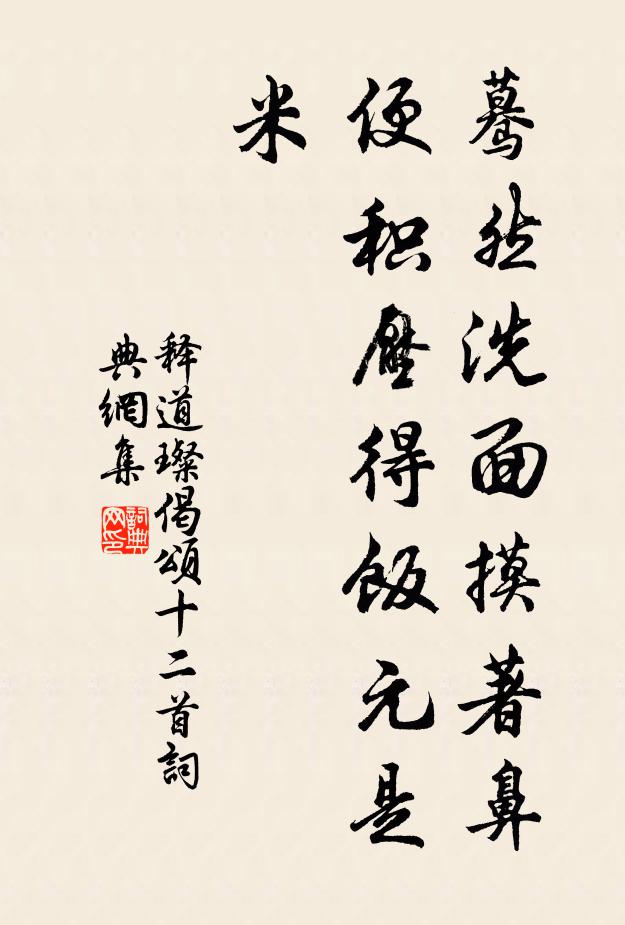 蓦然洗面摸著鼻
便积壓得飯元是
米
释道璨偈頌十二首詞
典網集
詞典網印